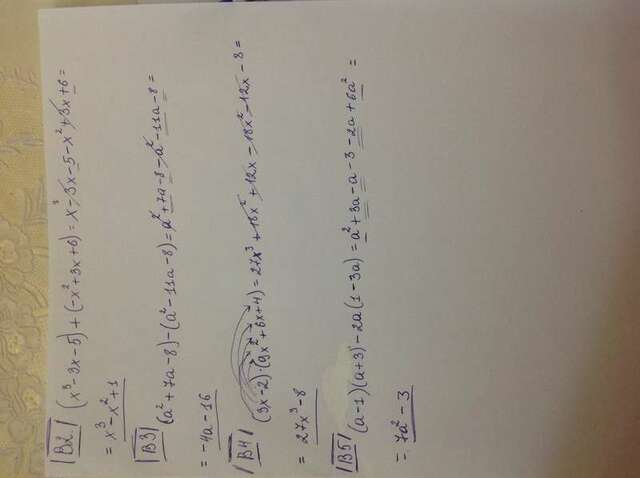 В2. (x³-3x-5)+(-x²+3x+6)=x³-3x-5-x²+3x+6=
=x³-x²+1
В3 (a²+7a-8)-(a²-11a-8)=a²+7a-8-a²-11a-8=
=-4a-16
В4 (3x-2)·(9x²+6x+4)=27x³+18x²+12x-18x²-12x-8=
=27x³-8
В5 (a-1)(a+3)-2a(1-3a)=a²+3a-a-3-2a+6a²=
=7a²-3